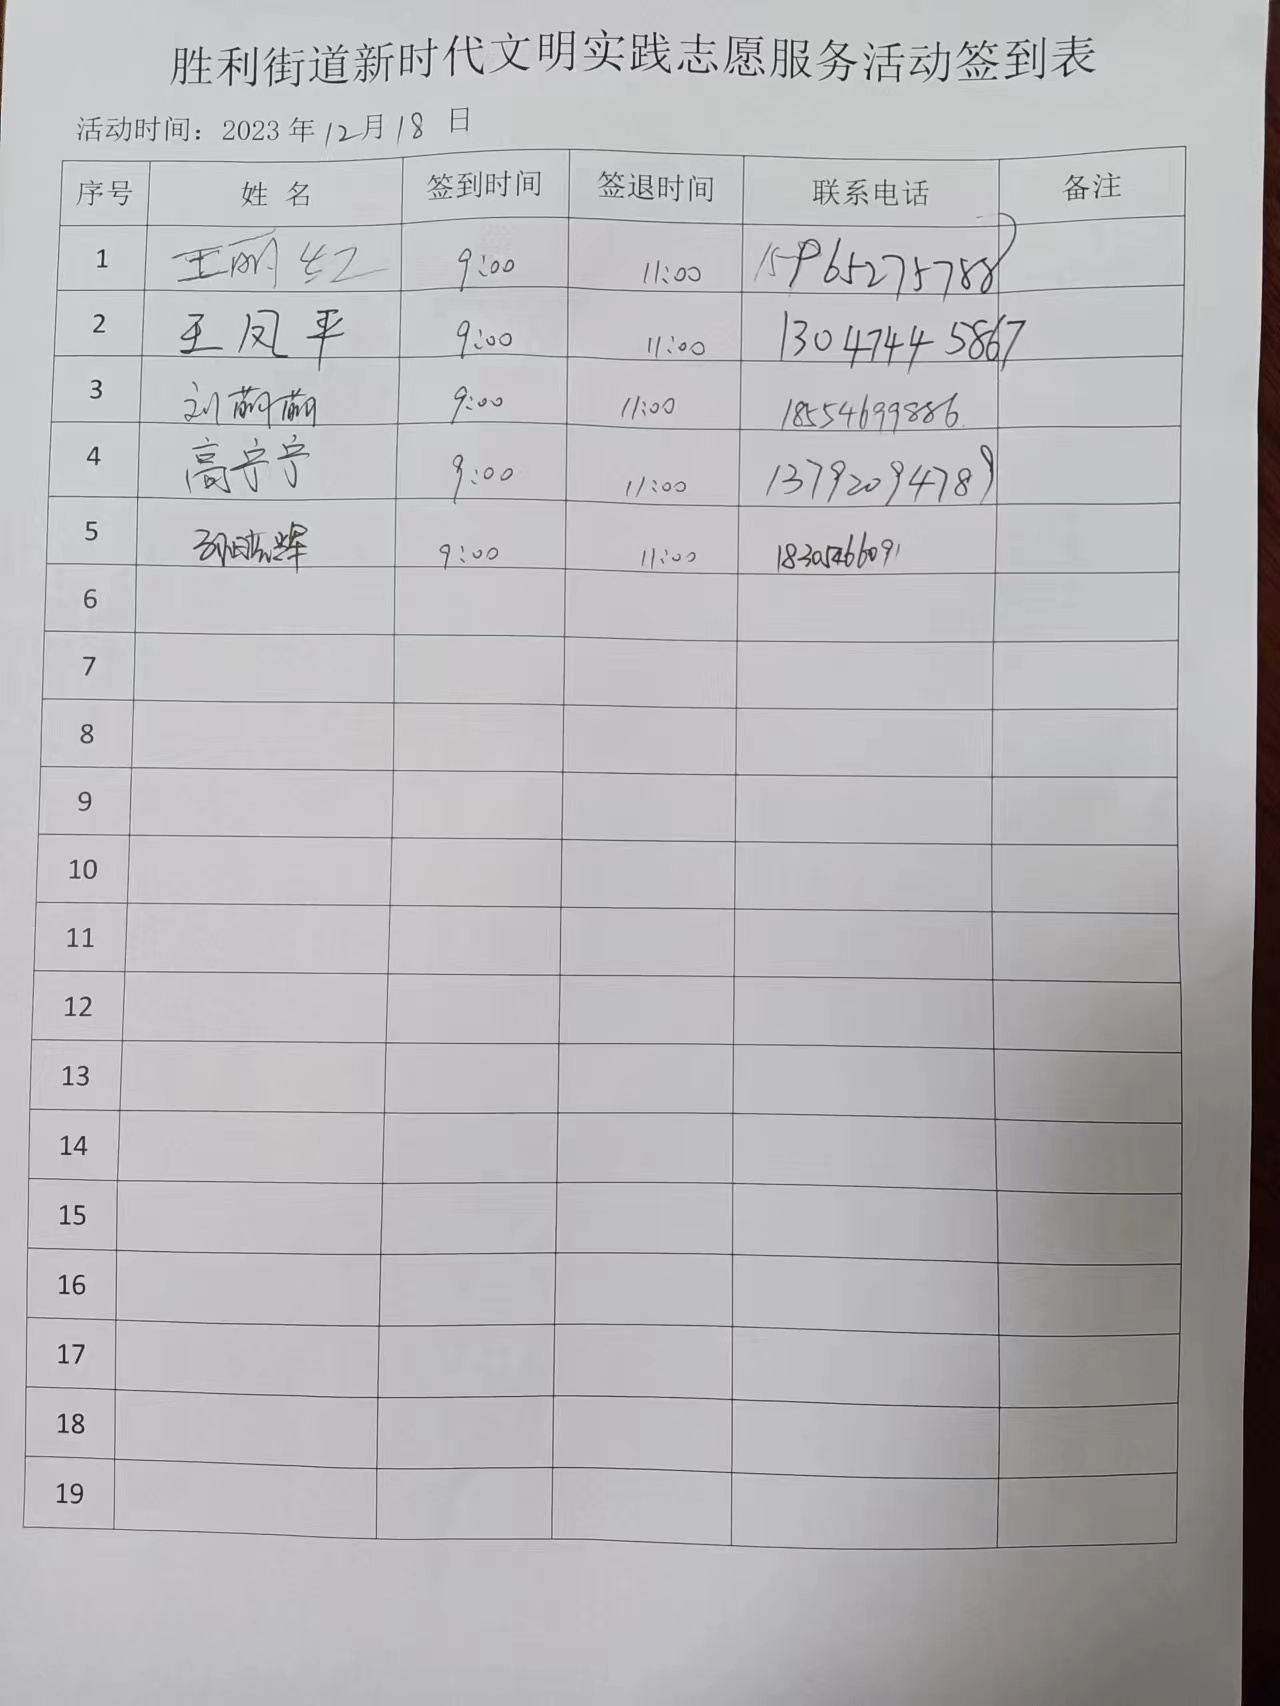 胜利街道新时代文明实践志愿服务活动签到表
活动时间：2023年12月18日
序号 姓 名 签到时间 签退时间 联系电话 备注
1 王丽红 9:00 11:00 15965275788
2 王凤平 9:00 11:00 13047445867
3 刘萌萌 9:00 11:00 18554699886
4 高宁宁 9:00 11:00 13792094789
5 9:00 11:00 18305466091
6
7
8
9
10
11
12
13
14
15
16
17
18
19